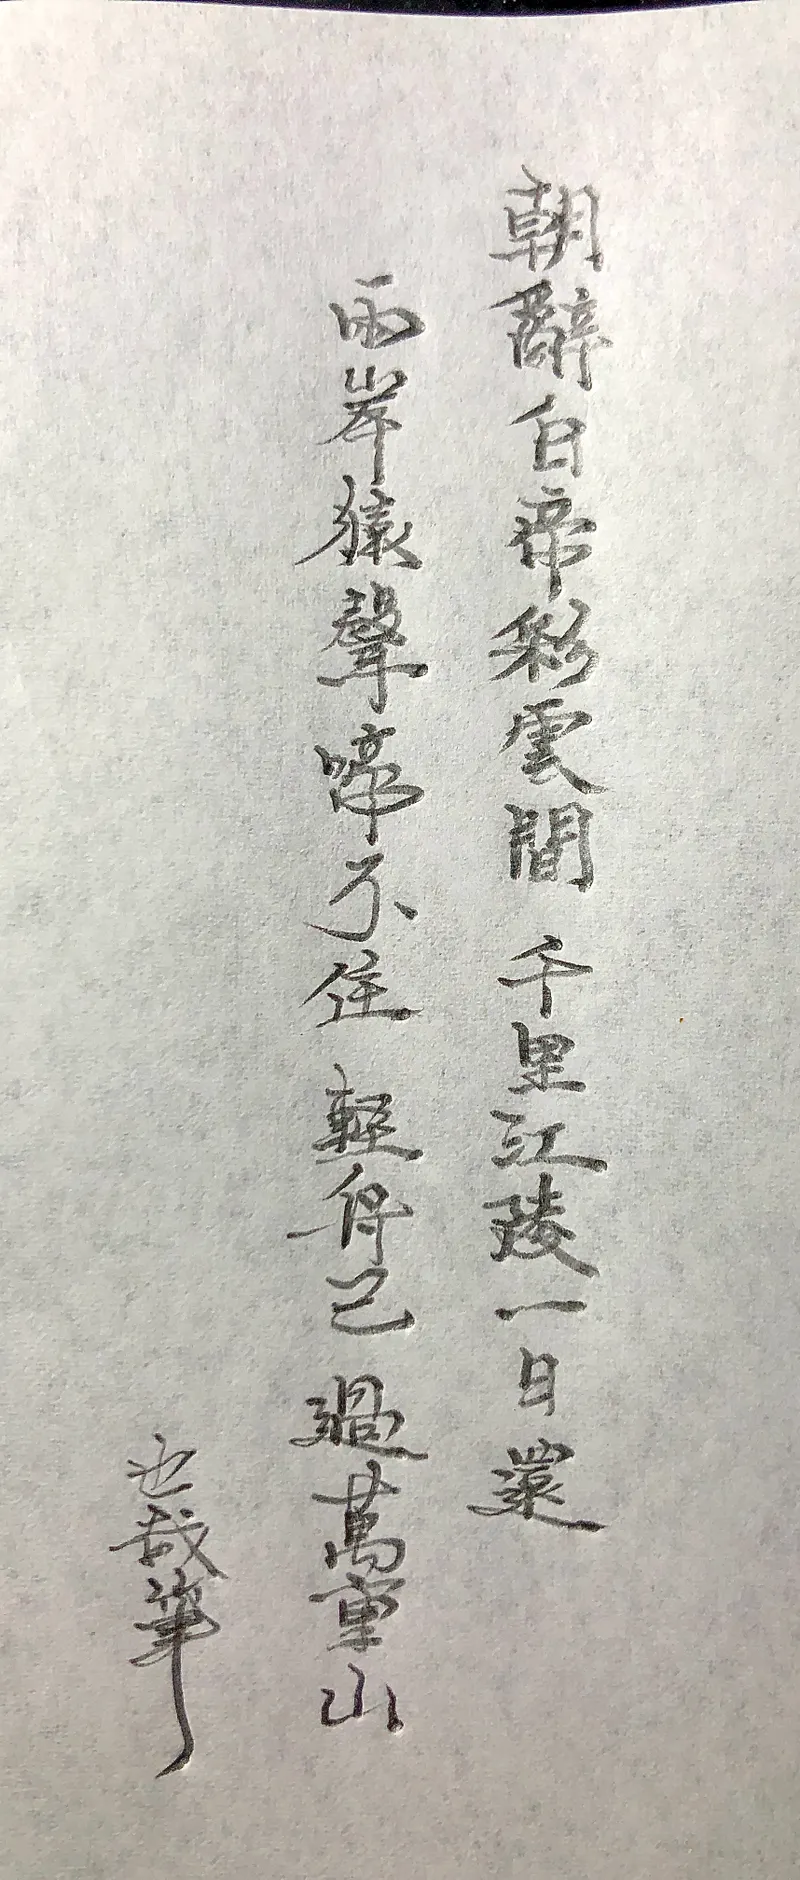 朝辭白帝彩雲間 千里江陵一日還
兩岸猿聲啼不住 輕舟已過萬重山
也哉筆